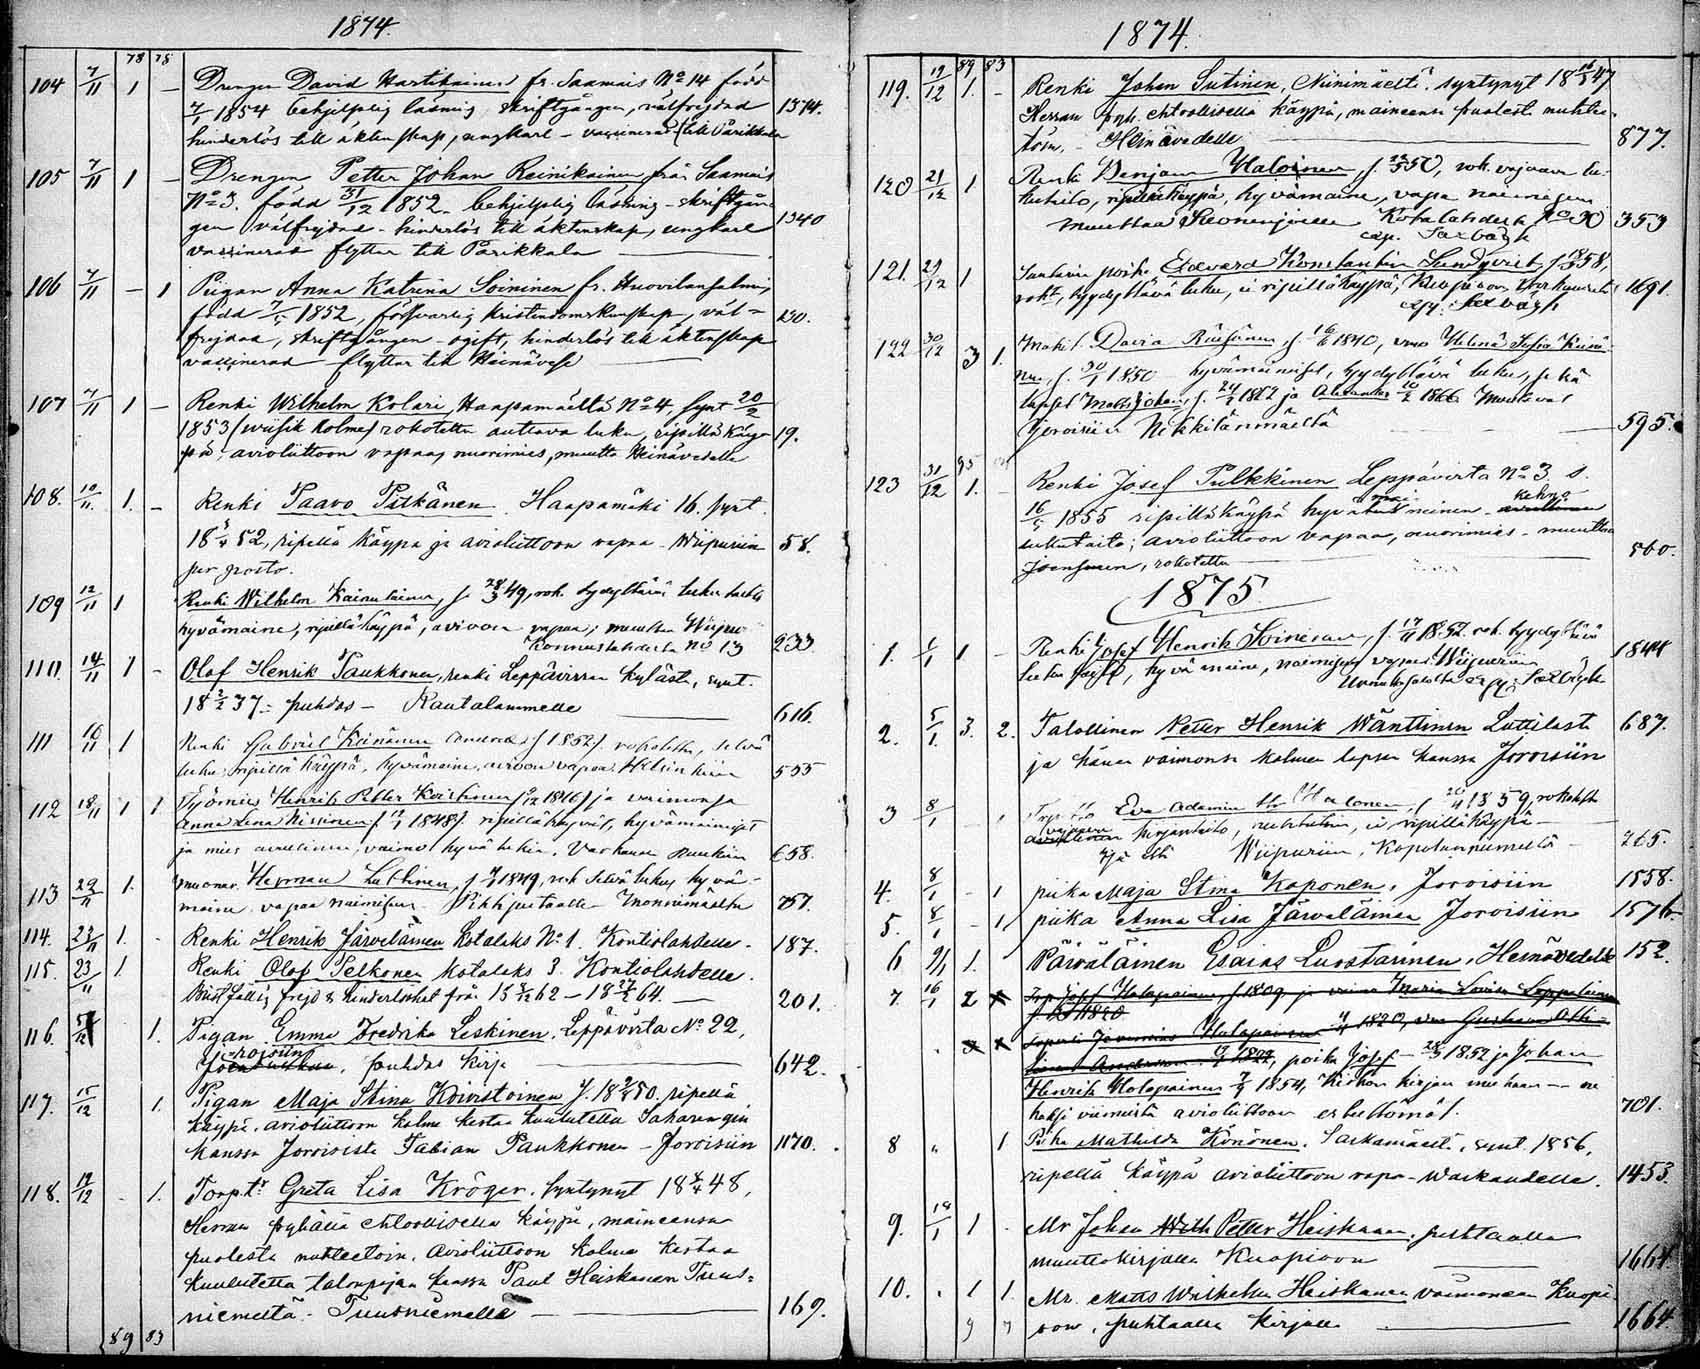 1874.
78 78
104 7/11 1 – Drengen David Hartikainen fr. Saamais No 14 född
7/1 1854 behjelplig läsning, skriftgången, välfrejdad 1374.
hinderlös till äktenskap, ungkarl – vaccinerad (till Parikkala
105 7/11 1 – Drengen Petter Johan Reinikainen från Saamais
No 3. född 31/12 1852 behjelplig läsning – skriftgån-
gen välfrejdad – hinderlös till äktenskap, ungkarl 1340
vaccinerad flyttar till Parikkala
106 7/11 – 1 Pigan Anna Katrina Soininen fr. Huovilansalmi,
född 1852, försvarlig kristendomskunskap, väl- 130.
frejdad, skriftgången – ogift, hinderlös till äktenskap
vaccinerad – flyttar till Heinävesi
107 7/11 1 – Renki Wilhelm Kolari, Haapamäeltä No 4 synt 20/2
1853 (wiisik kolme) rokotettu auttava luku, ripillä käy- 19.
pä, avioliittoon vapaa, nuorimies, muutta Heinävedelle
108. 10/11. 1. – Renki Paavo Pitkänen, Haapamäki 16. synt.
18 52, ripillä käypä ja avioliittoon vapaa – Wiipuriin 58.
per posto.
109 12/11 1 Renki Wilhelm Kainulainen, s. 28/3 49, rok. tydyttävä luku taito
hyvämaine, ripillä käypä, avioon vapaa; muuttaa Wiipu
Konnuslahdesta No 13 233.
110. 14/11 1 – Olof Henrik Paukkonen, renki Leppävirran kylästä, synt.
18 2/2 37 – puhdas – Rautalammelle 616.
111 16/11 1 Renki Gabriel Keinänen s. 1852. rokotettu, selvä
luku, ripillä käypä, hyvämaine, avioon vapaa, Helsinkiin 555
112 18/11 1 1 Työmies Henrik Petter Koistinen 1816 ja vaimonsa
Anna Lena Nissinen 1848. ripillä käyvät, hyvämainiset
ja mies luku, vaimo hyvä luku. Varkauden Ruukiin 658.
113 22/11 1. Herman Luttinen, s. 1849, rok. selvä luku, hyvä-
maine, vapaa naimiseen – Pihtiputaalle 757.
114. 23/11 1. Renki Henrik Järveläinen Kotalaks No 1. Kontiolahdelle. 187.
115. 23/11 1. Renki Olof Pelkonen Kotalaks 3. Kontiolahdelle.
Bristfällig frejd & hinderlöshet från 15 62 – 18 64. 201.
116. 1. Pigan Emma Fredrika Leskinen, Leppävirta No 22,
roisiin
puhdas kirje 642.
117. 15/12 1. Pigan Maja Stina Koivistoinen s. 18 50. ripillä
käypä, avioliittoon kolme kertaa kuulutettu Sakarengin
kanssa Joroisista Fabian Paukkonen – Joroisiin 1170.
118. 17/12 – 1. Torp.tr Greta Lisa Kröger. Syntynyt 18 48,
Herran pyhällä ehtoollisella käypä, maineensa
puolesta nuhteetoin, avioliittoon kolme kertaa
kuulutettu talonpojan kanssa Paul Heiskanen Tuus-
niemeltä – Tuusniemelle 169.
89 83
1874.
89 83
119. 19/12 1. – Renki Johan Sutinen, Niinimäeltä syntynyt 18 47
Herran pyh. ehtoollisella käypä, maineensa puolesta nuhtee-
töin. – Heinävedelle 877.
120 21/12 1 Renki Benjam Haloinen s. 50, rok. vajaava lu-
kutaito, ripillä käypä, hyvämaine, vapa naimiseen
muuttaa Savonrinnalle, Kotalahdesta No 30 353
exp. Saxbäck
121. 29/12 1 Suutarin poika Edvard Konstantin Sundqvist, s. 58,
rok., tyydyttävä luku, ei ripillä käypä, Kuopioon 1691.
exp. Saxbäck
122 30/12 3 1. Mäkil. David Räisänen s. 1840, vmo Helena Sofia Keinä-
nen s. 30/1 1850 hyvämainiset, tyydyttävä luku, sekä
lapset Matts Johan s. 1862 ja Alexander 1866 Muuttavat
Joroisiin Nikkilänmäeltä 595.
123 31/12 95 1. – Renki Josef Pulkkinen Leppävirta No 3 s.
16/5 1855 ripillä käypä hyvä maineinen – kehno
lukutaito; avioliittoon vapaa, nuorimies – muuttaa
Joensuun, rokotettu 560.
1875
1. 1/1 1 – Renki Josef Henrik Soininen, s. 17/11 1852. rok. tyydyttävä 1844
luku taito, hyvä maine, naimiseen vapaa. Wiipuriin
exp. Saxbäck
2. 5/1. 3. 2. Talollinen Petter Henrik Wänttinen Luttilasta 687.
ja hänen vaimonsa kolmen lapsen kanssa Joroisiin
3 8/1 1 Eva Adamin tr Halonen, s. 20/4 1859, rokotettu
vajaava kirjantaito, nuhteetoin, ei ripillä käypä –
Wiipuriin, Kopolanniemeltä – 265.
4. 8/1 – 1 piika Maja Stina Koponen, Joroisiin 1558.
5. 8/1 – 1 piika Anna Lisa Järveläinen Joroisiin 1576
6 9/1 1. Päiväläinen Esaias Luostarinen, Heinävedelle 152.
7. 16/1 2 Josef Holopainen, s. 1809 ja vaimo Maria Lovisa Leppäläinen
1820
Jeremias Holopainen 1820, vmo Gustava
Andersson 1822, poika Josef – 28/3 1852 ja Johan
Henrik Holopainen 1854, kirjan mukaan – ne
kaksi viimeistä avioliittoon esteettömät. 701.
8 „ 1 Piika Mathilda Könönen. Sarkamäeltä, synt. 1856,
ripillä käypä avioliittoon vapa – Warkaudelle. 1453.
9. 1 – Mr Johan Petter Heiskanen, puhtaalla
muuttokirjalla Kuopioon 1664.
10. „ 1 1. Mr. Matts Wilhelm Heiskanen vaimoneen Kuopi-
9 7 oon, puhtaalla kirjalla 1664.